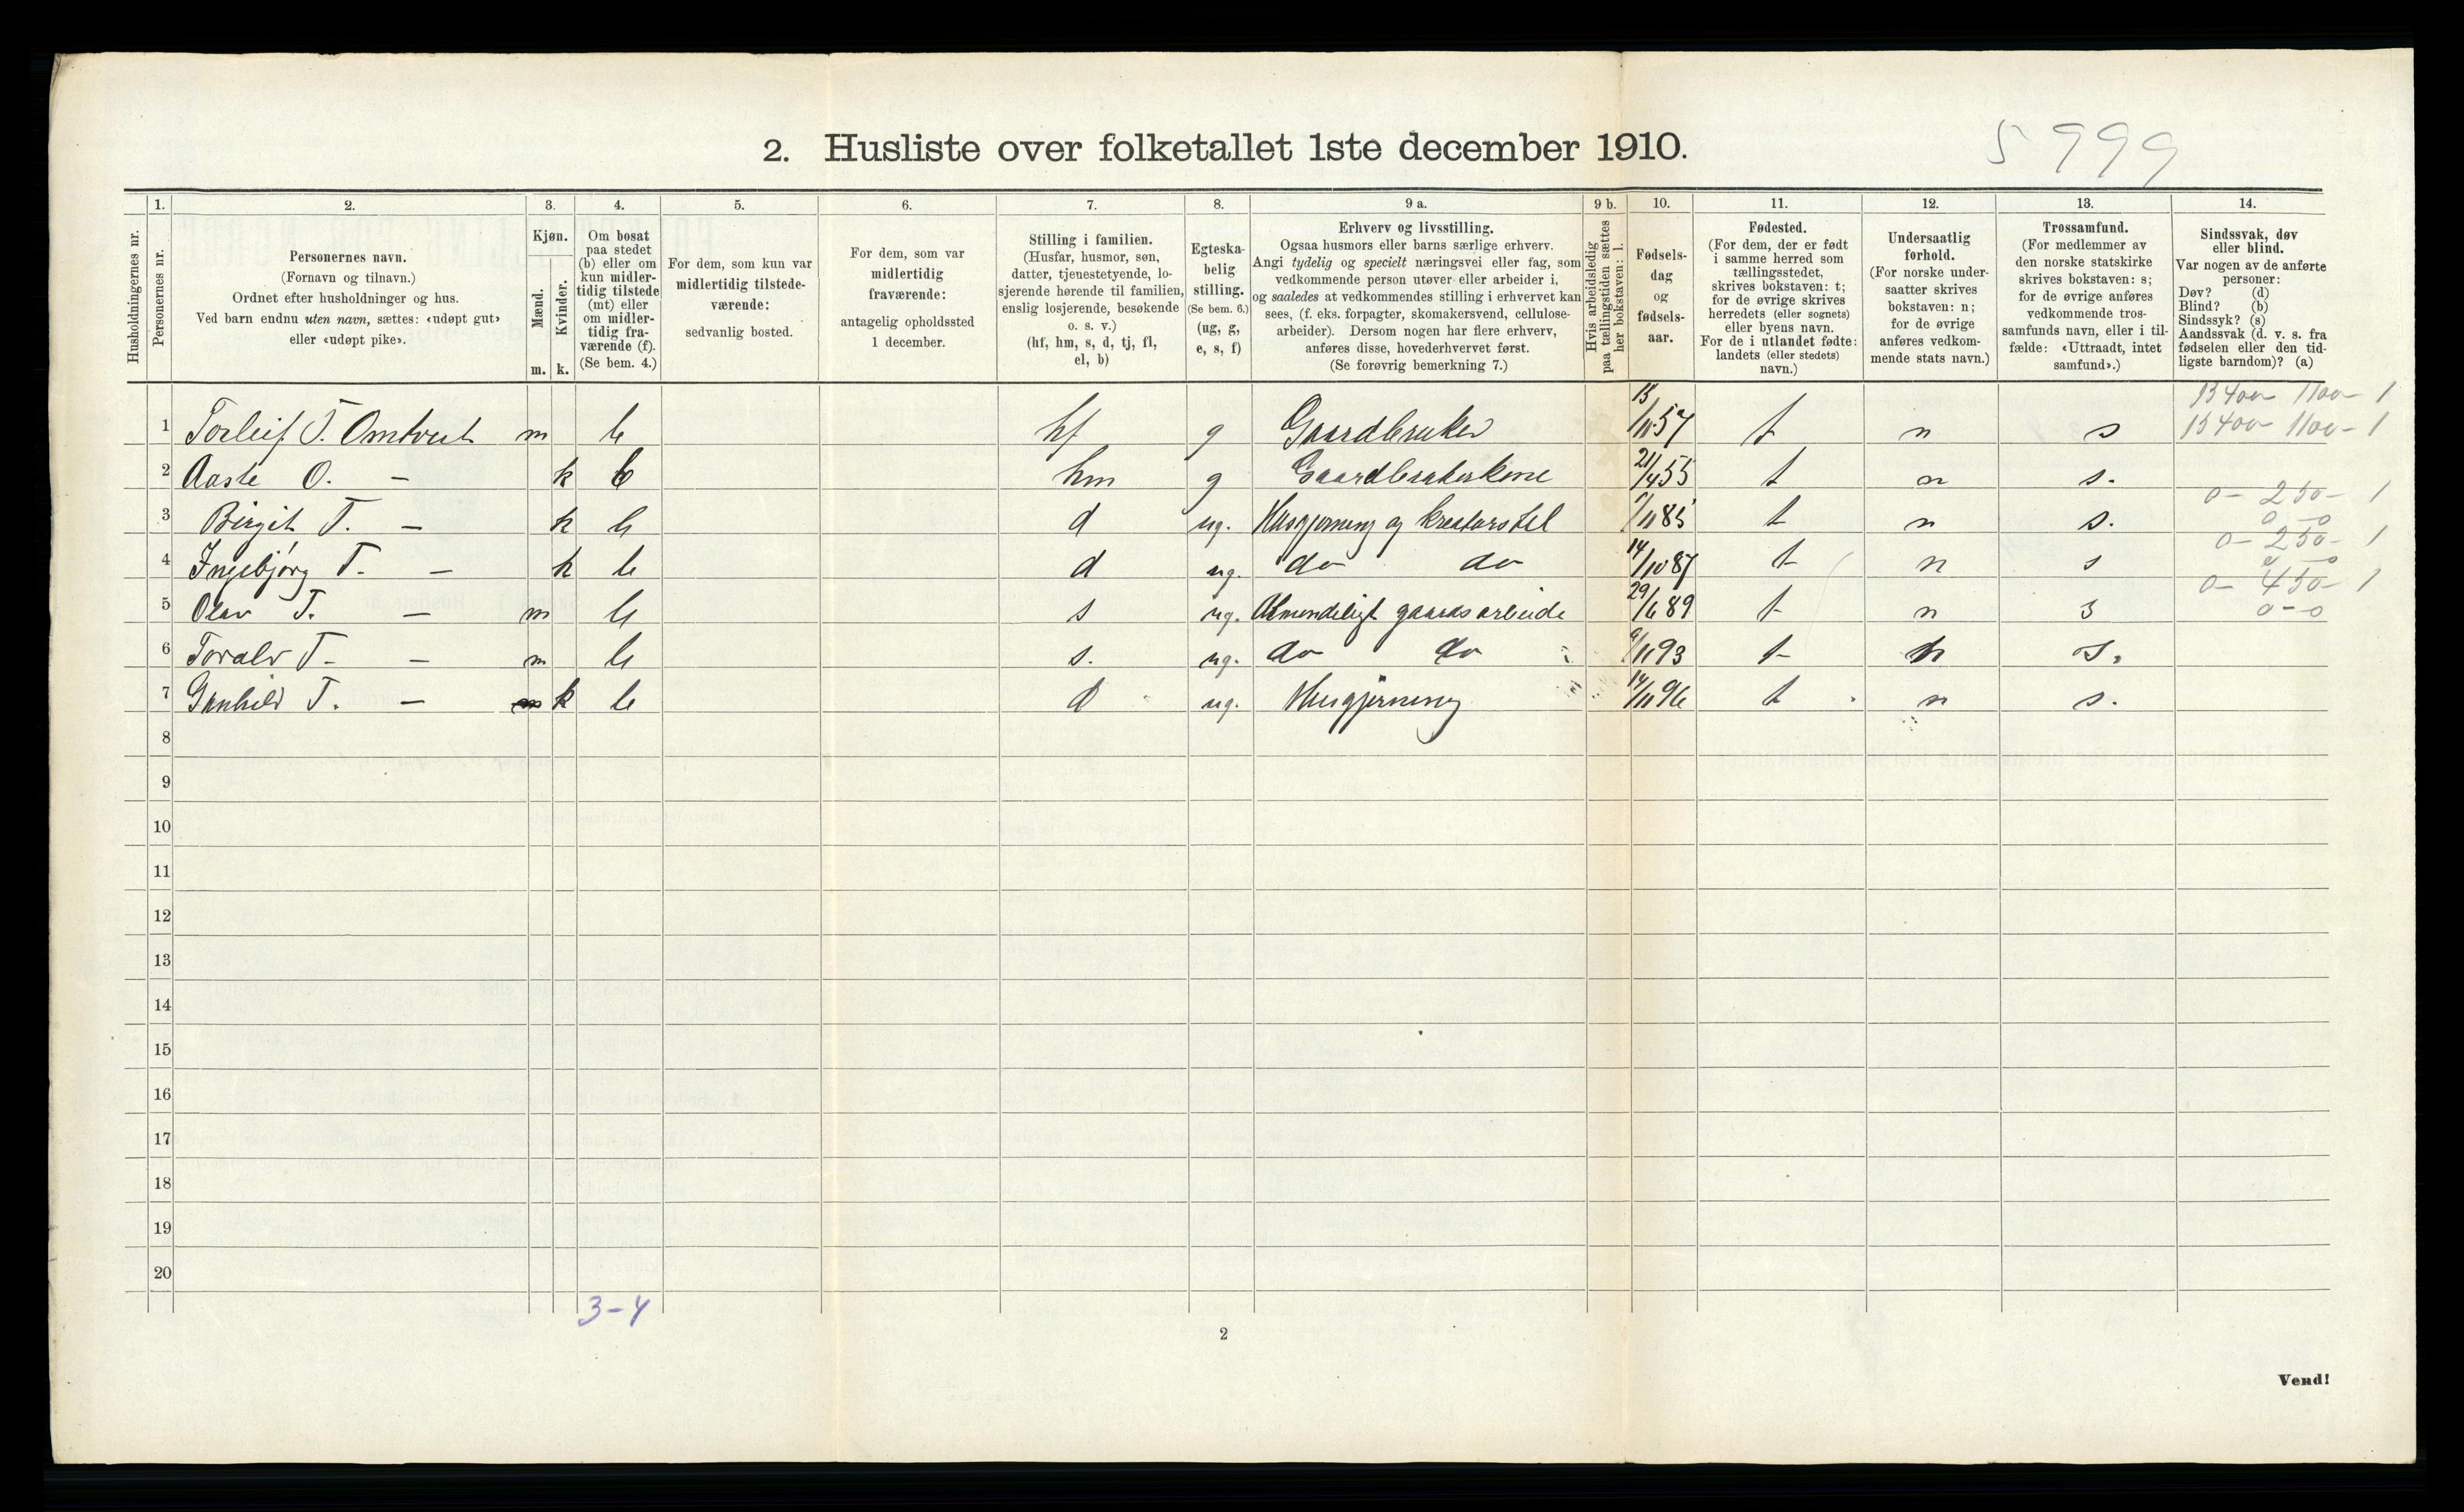 2. Husliste over folketallet 1ste december 1910.
5999
Husholdningernes nr.
1. Personernes nr.
2. Personernes navn.
(Fornavn og tilnavn.)
Ordnet efter husholdninger og hus.
Ved barn endnu uten navn, sættes: «udøpt gut»
eller «udøpt pike».
3. Kjøn.
Mænd. Kvinder.
m. k.
4. Om bosat
paa stedet
(b) eller om
kun midler-
tidig tilstede
(mt) eller
om midler-
tidig fra-
værende (f).
(Se bem. 4.)
5. For dem, som kun var
midlertidig tilstede-
værende:
sedvanlig bosted.
6. For dem, som var
midlertidig
fraværende:
antagelig opholdssted
1 december.
7. Stilling i familien.
(Husfar, husmor, søn,
datter, tjenestetyende, lo-
sjerende hørende til familien,
enslig losjerende, besøkende
o. s. v.)
(hf, hm, s, d, tj, fl,
el, b)
8. Egteska-
belig
stilling.
(Se bem. 6.)
(ug, g,
e, s, f)
9 a. Erhverv og livsstilling.
Ogsaa husmors eller barns særlige erhverv.
Angi tydelig og specielt næringsvei eller fag, som
vedkommende person utøver eller arbeider i,
og saaledes at vedkommendes stilling i erhvervet kan
sees, (f. eks. forpagter, skomakersvend, cellulose-
arbeider). Dersom nogen har flere erhverv,
anføres disse, hovederhvervet først.
(Se forøvrig bemerkning 7.)
9 b. Hvis arbeidsledig
paa tællingstiden sættes
her bokstaven: l.
10. Fødsels-
dag
og
fødsels-
aar.
11. Fødested.
(For dem, der er født
i samme herred som
tællingsstedet,
skrives bokstaven: t;
for de øvrige skrives
herredets (eller sognets)
eller byens navn.
For de i utlandet fødte:
landets (eller stedets)
navn.)
12. Undersaatlig
forhold.
(For norske under-
saatter skrives
bokstaven: n;
for de øvrige
anføres vedkom-
mende stats navn.)
13. Trossamfund.
(For medlemmer av
den norske statskirke
skrives bokstaven: s;
for de øvrige anføres
vedkommende tros-
samfunds navn, eller i til-
fælde: «Uttraadt, intet
samfund».)
14. Sindssvak, døv
eller blind.
Var nogen av de anførte
personer:
Døv? (d)
Blind? (b)
Sindssyk? (s)
Aandssvak (d. v. s. fra
fødselen eller den tid-
ligste barndom)? (a)
13400- 1100- 1
1 Torleif T. Omtvet m b hf g Gaardbruker t n s 13400- 1100- 1
2 Aaste O. — k b hm g Gaardbrukerkone 21/4 55 t n s.
0- 250- 1
3 Birgit T. — k b d ug. Husgjerning og kreaturstel t n s. 0-0
0- 250- 1
4 Ingebjørg T. — k b d ug. do do 14/10 87 t n s 0-0
0- 450- 1
5 Olav T. — m b s ug. Almindeligt gaardsarbeide 29/6 89 t n s 0-0
6 Toralv T. — m b s. ug. do do 9/11 93 t n s.
7 Gunhild T. — m k b d ug. Husgjerning 14/11 96 t n s.
8
9
10
11
12
13
14
15
16
17
18
19
20
3-4
2
Vend!